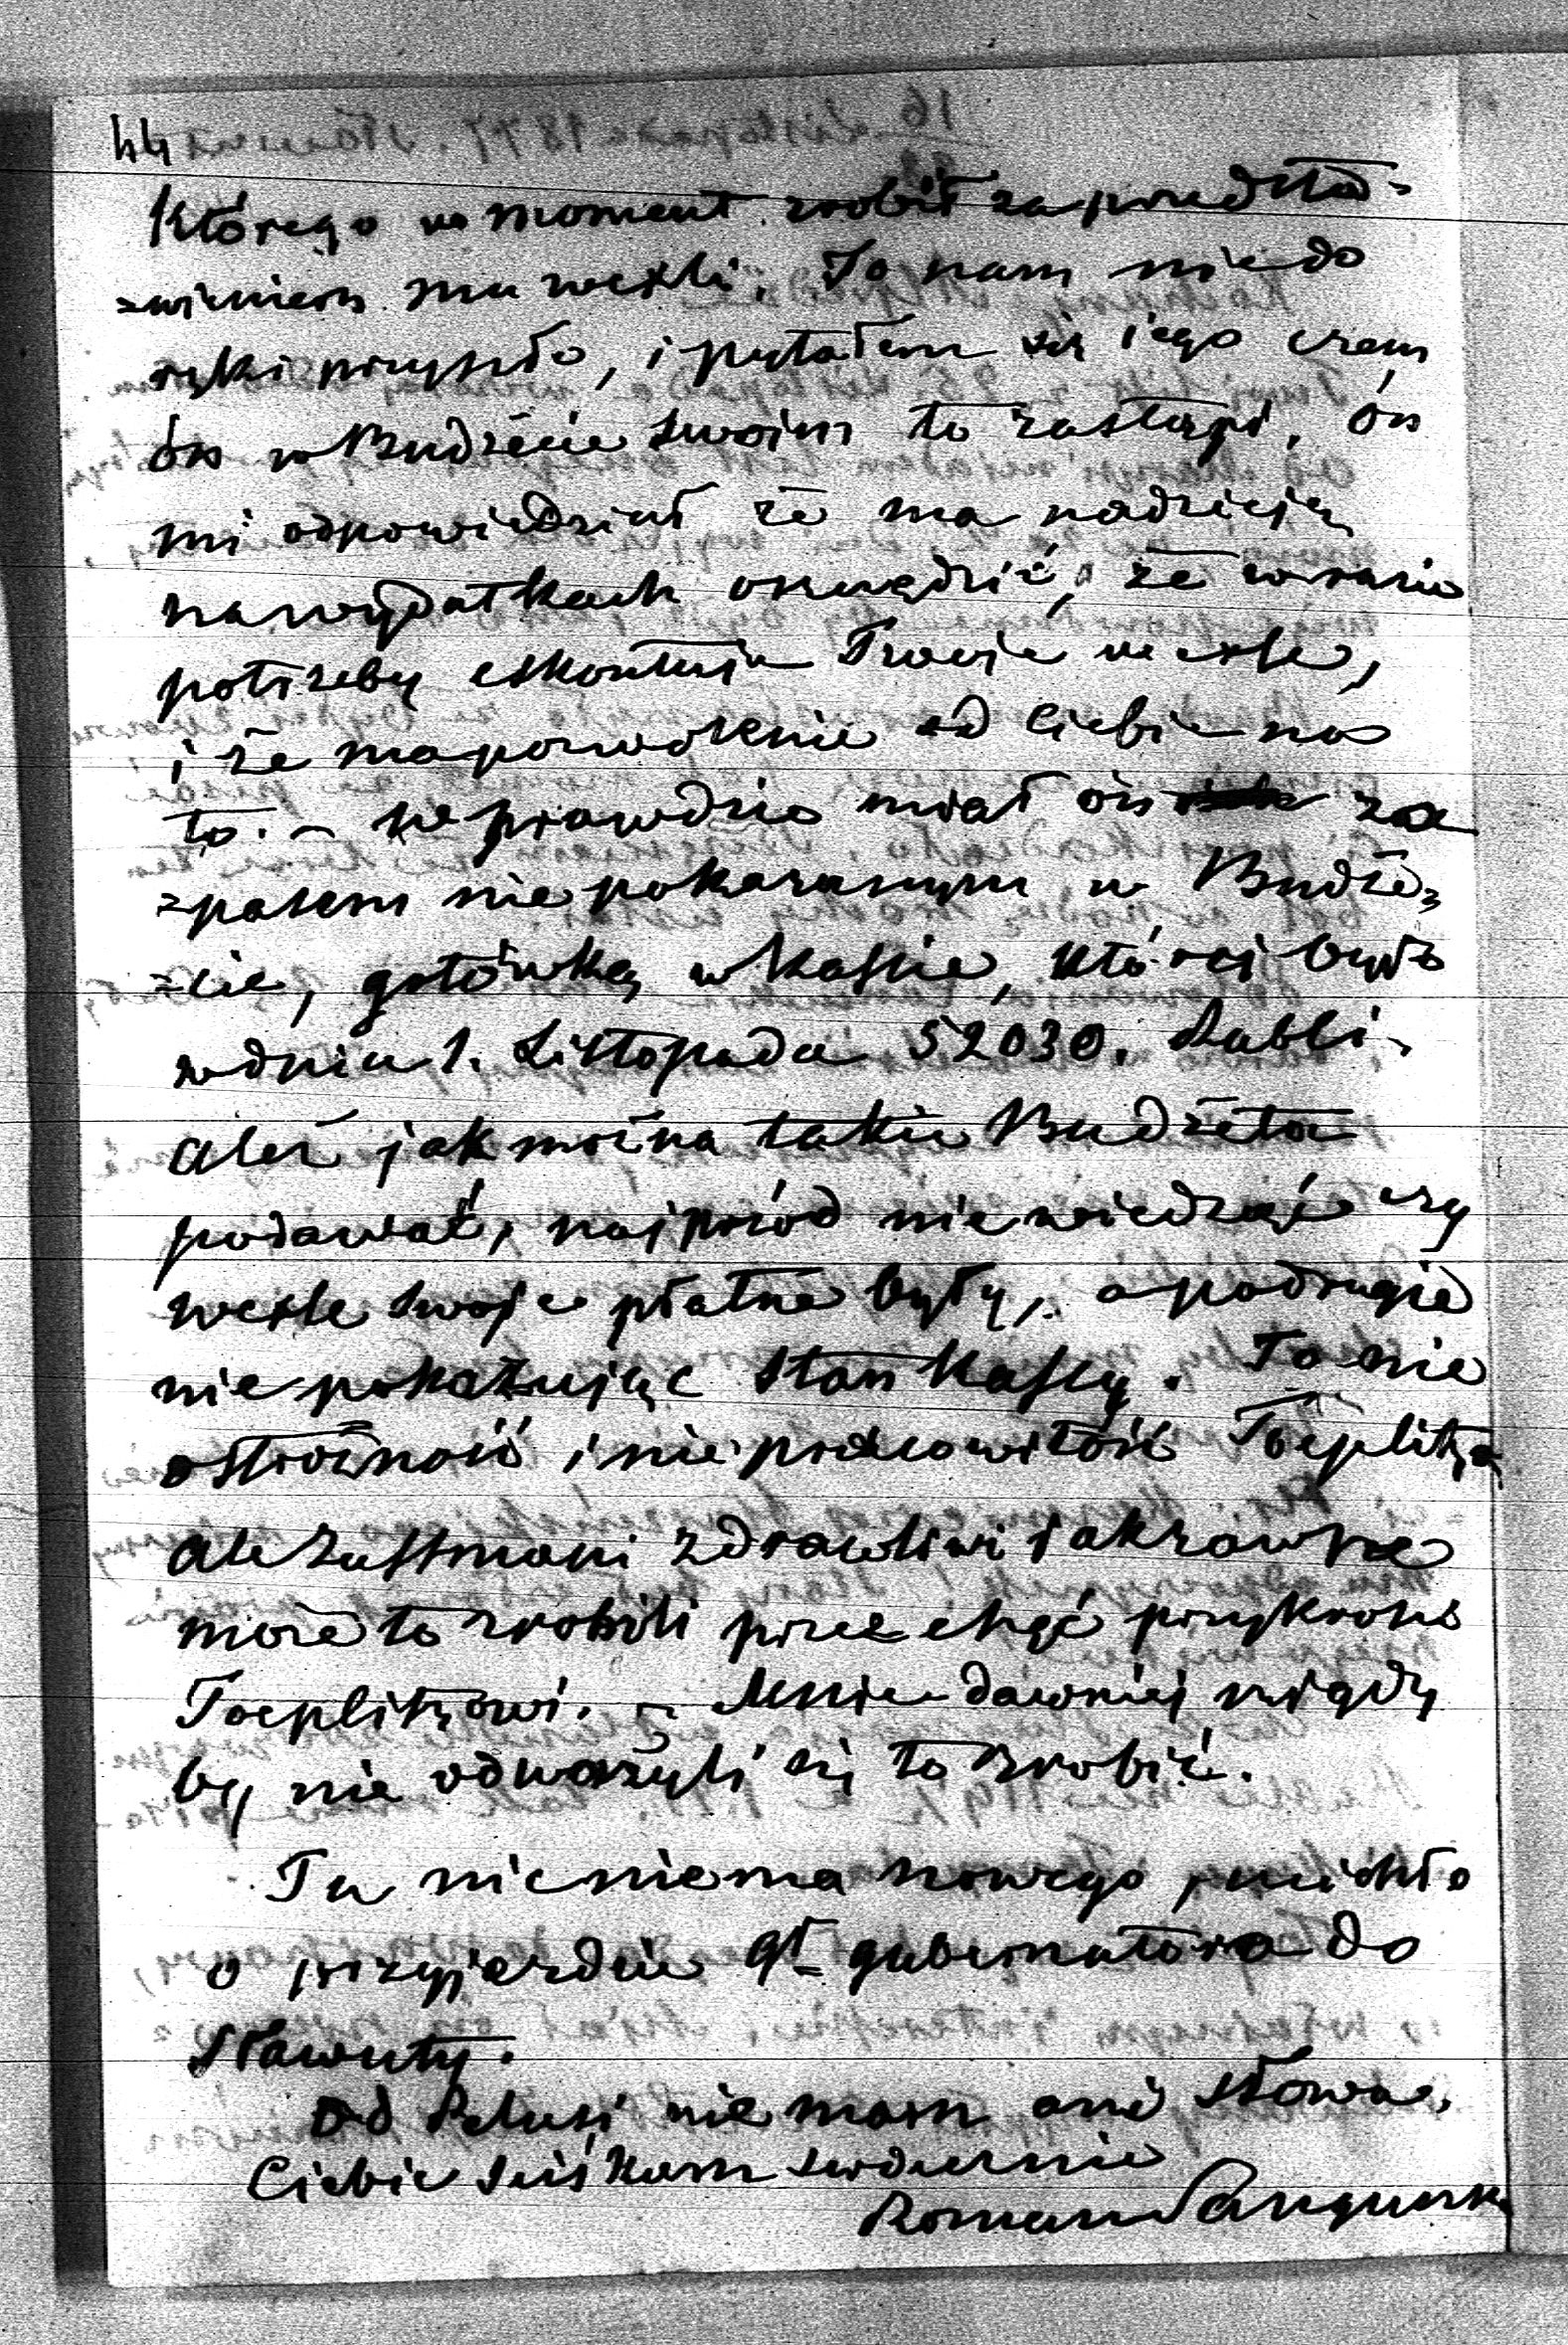 44
którego w moment zrobił za przedsta=
=wieniem mu wexli. To nam nie do
ręki przyszło, i pytałem się iego czem
ón w Budżecie swoim to zastąpi. ón
mi odpowiedział że ma nadzieję
na wydatkach oszczędzić, że w razie
potrzeby eskontuje Twoje wexle,
i że ma pozwolenie od Ciebie na
to. – Wprawdzie miał ón za
=pasem nie pokazanym w Budże=
=cie, gotówkę w Kassie, któréj było
w dniu 1. Listopada 52030. Rubli.
Ależ jak można takie Budżeta
podawać, najprzód nie wiedząc czy
wexle swoje płatne były, a po drugie
nie pokazując stan Kassy. To nie
ostrożność i nie pracowitość Toeplitza
ale zdradliwi
może to zrobili przez chęć przykrości
Toeplitzowi. – Mnie dawniej nigdy
by nie odważyli się to zrobić.
Tu nic nie ma nowego, ucichło
o przyjeździe Gł gubernatora do
Sławuty.
od Relusi nie mam ani słowa.
Ciebie ściskam serdecznie
Roman Sanguszko